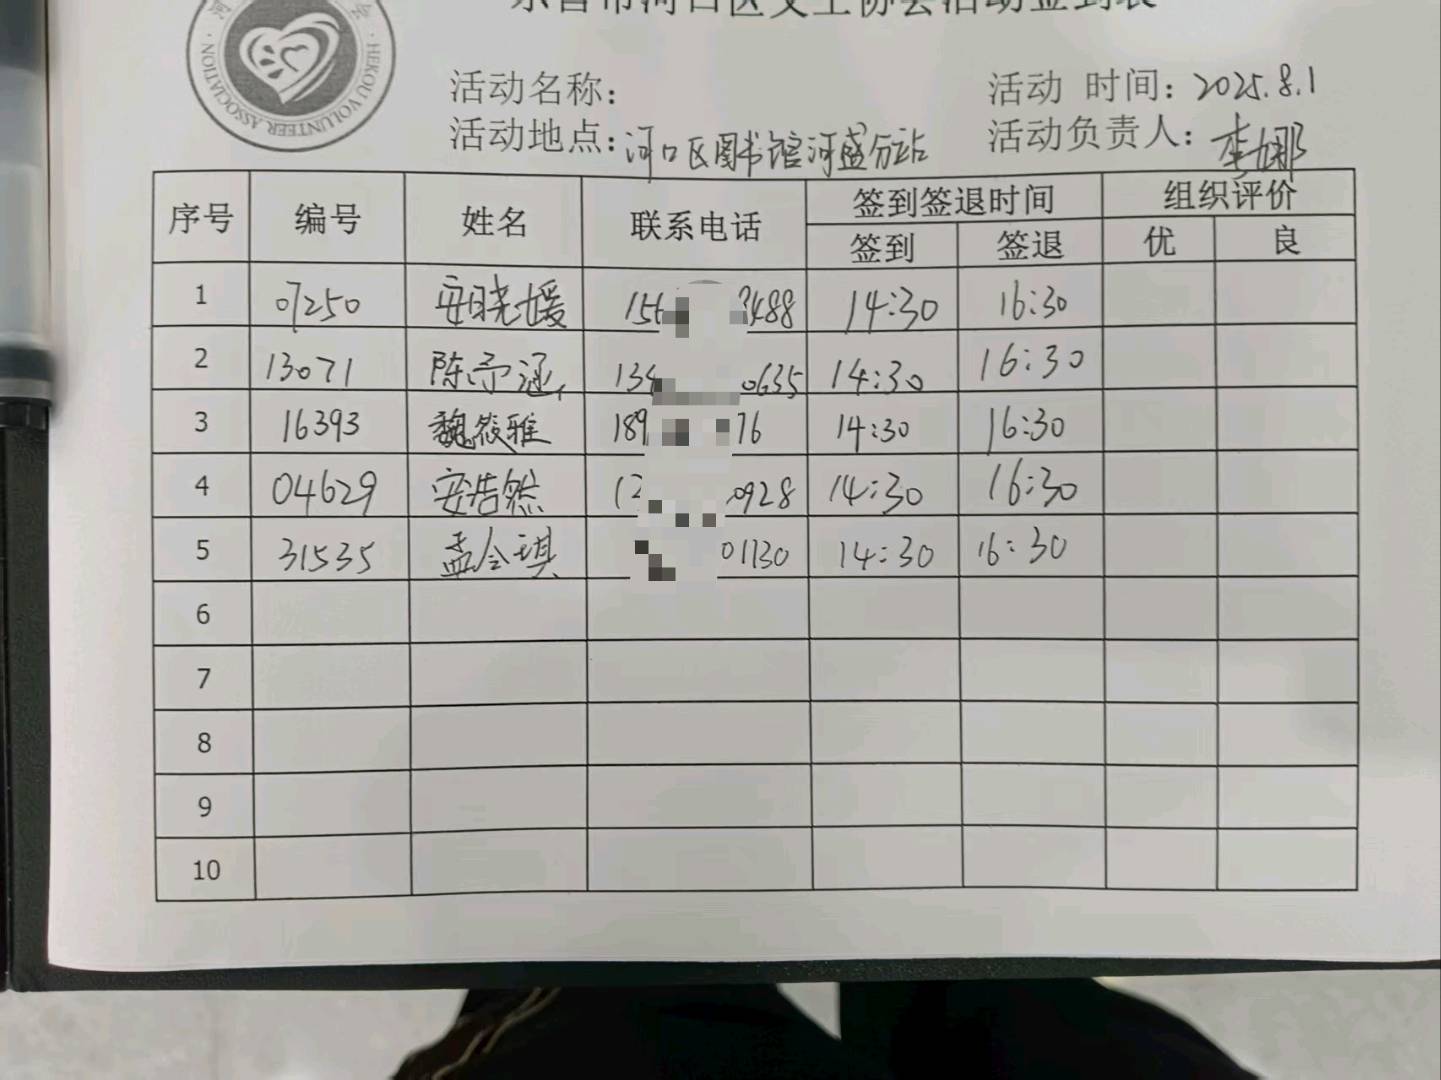 HEKOU VOLUNTEER ASSOCIATION
活动名称：
活动时间：2025.8.1
活动地点：河口区图书馆河盛分站
活动负责人：李娜
序号 编号 姓名 联系电话 签到签退时间 组织评价
签到 签退 优 良
1 07250 安晓媛 156 3488 14:30 16:30
2 13071 陈予涵 134 0635 14:30 16:30
3 16393 魏筱雅 189 76 14:30 16:30
4 04629 安浩然 0928 14:30 16:30
5 31535 孟令琪 01130 14:30 16:30
6
7
8
9
10